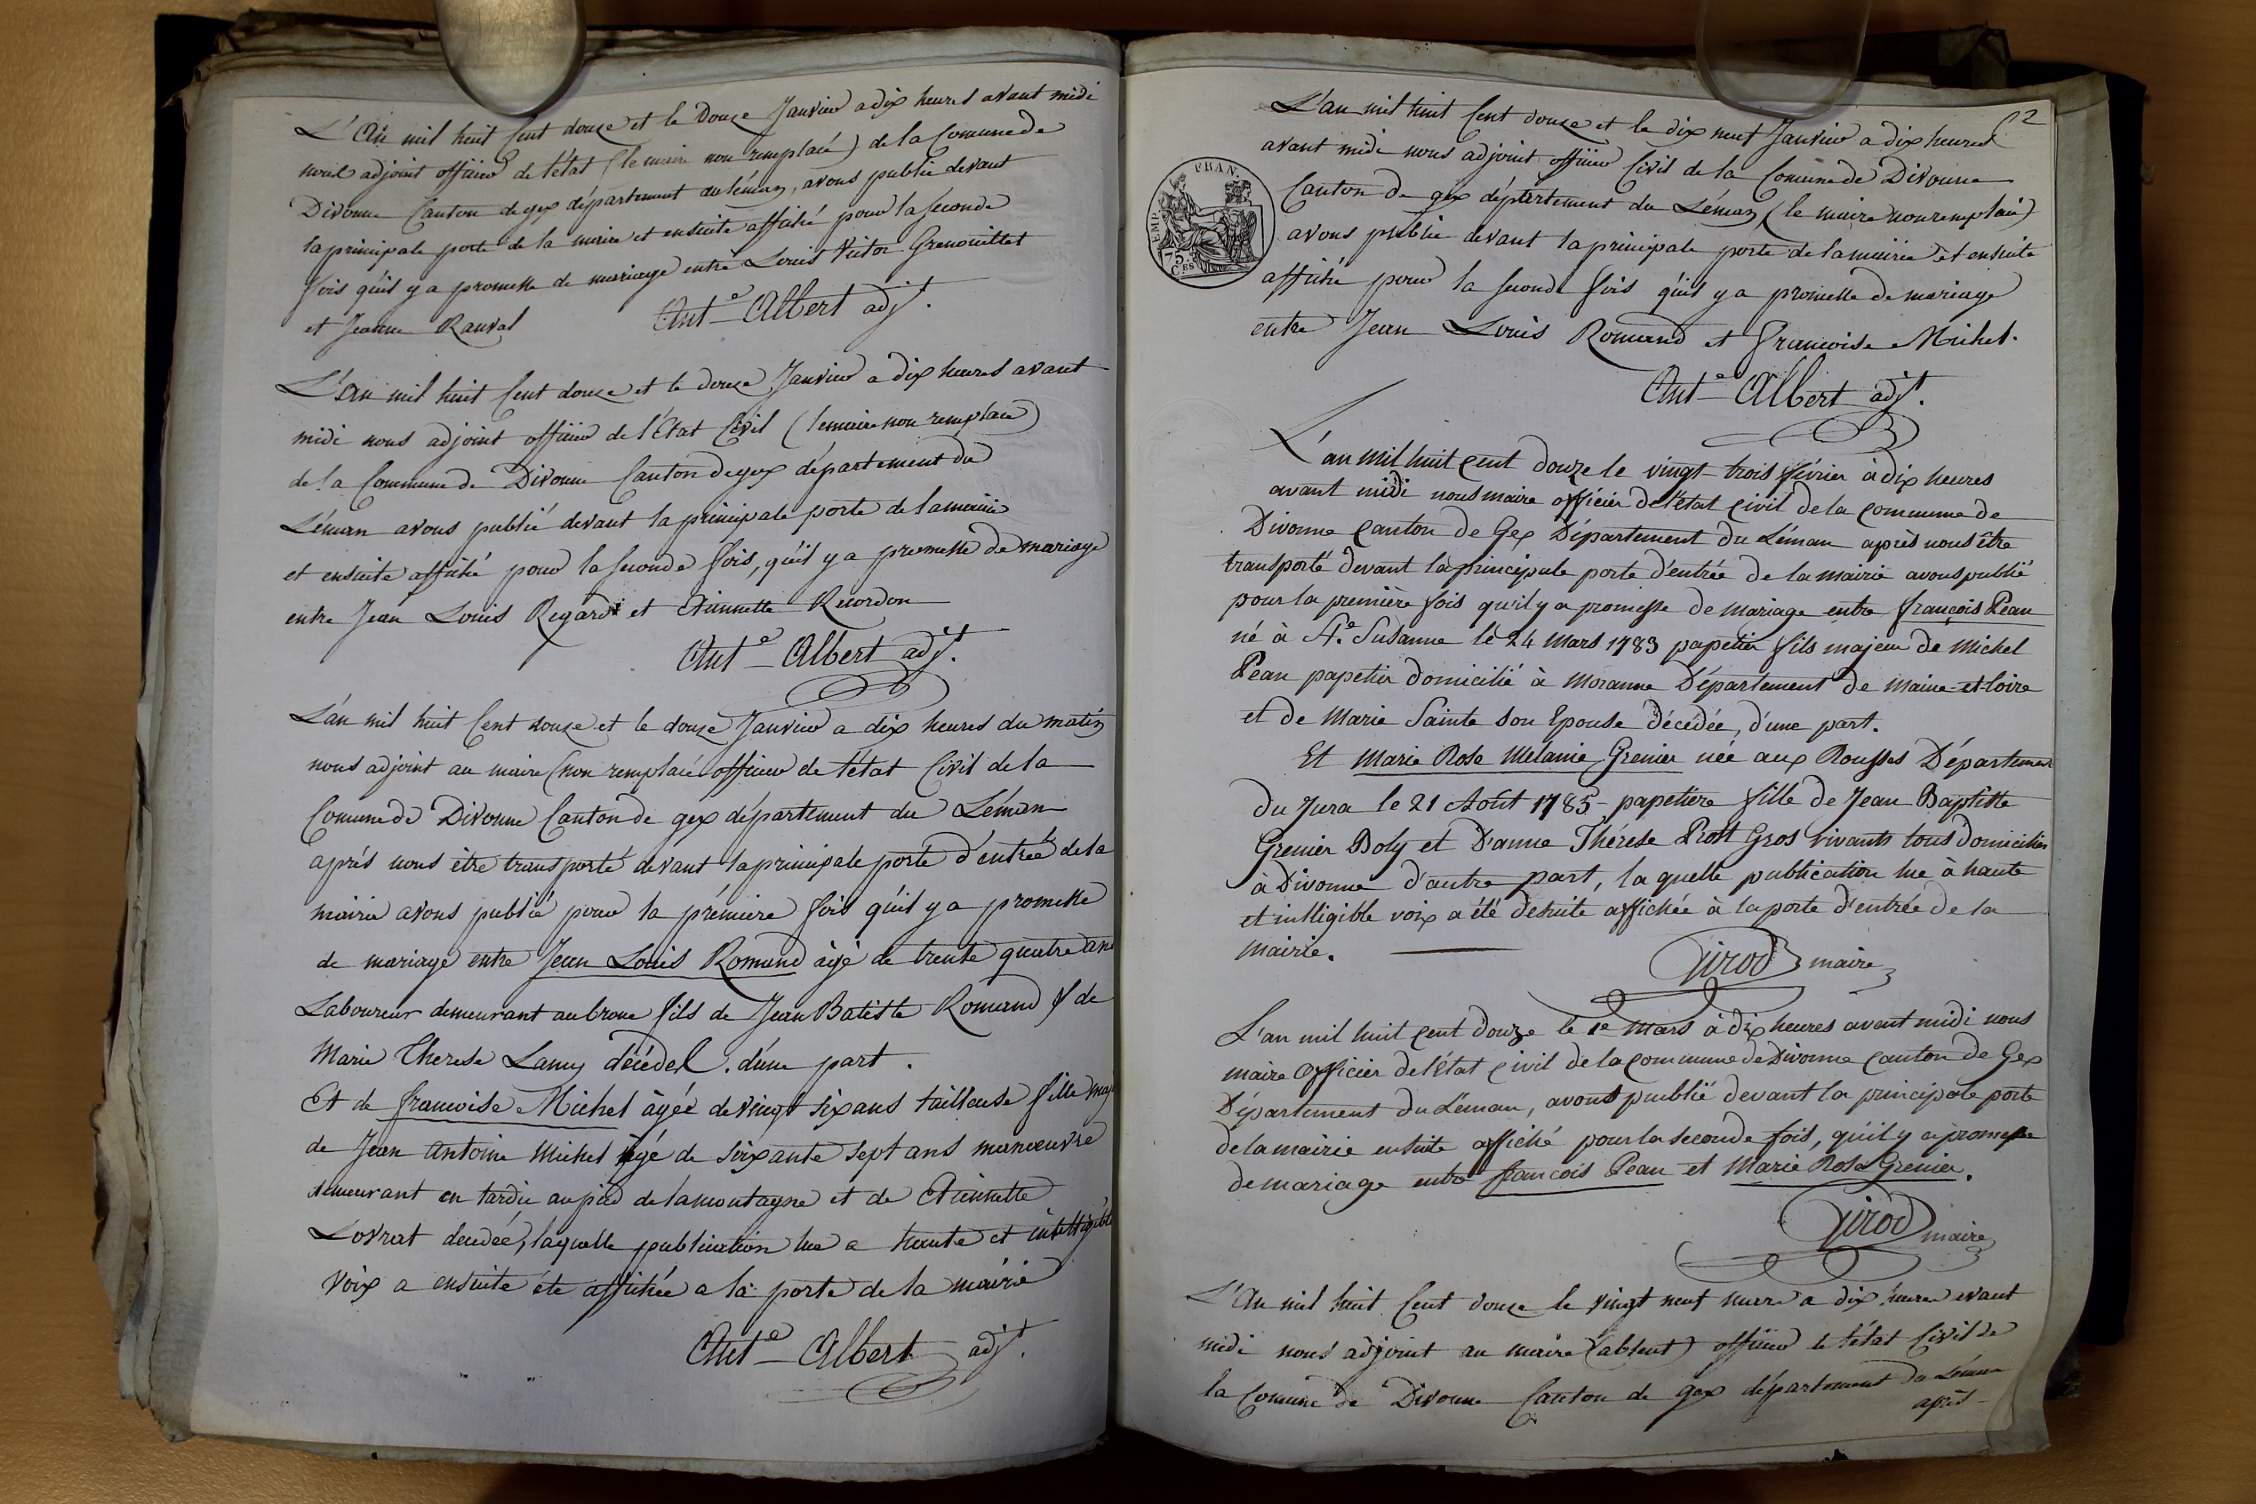 L'An mil huit Cent douze et le Douze Janvier a dix heures avant midi
nous adjoint officier de l'état (le maire non remplacé) de la Comune de
Divonne Canton de gex département du léman, avons publié devant
la principale porte de la mairie et ensuite affiché pour la seconde
fois qu'il y a promesse de mariage entre Louis Victor Grenouillet
et Jeanne Ranval
Ant.e Albert adj.t
L'an mil huit Cent douze et le douze Janvier a dix heures avant
midi nous adjoint officier de l'Etat Civil (le maire non remplacé)
de la Commune de Divonne Canton de gex département du
Léman avons publié devant la principale porte de la mairie
et ensuite affiché pour la seconde fois, qu'il y a promesse de mariage
entre Jean Louis Regard et Etiennette Recordon
Ant.e Albert adj.t
L'an mil huit Cent douze et le douze Janvier a dix heures du matin
nous adjoint au maire (non remplacé officier de l'état Civil de la
Comune de Divonne Canton de gex département du Léman
après nous être transporté devant la principale porte d'entrée de la
mairie avons publié pour la première fois qu'il y a promesse
de mariage entre Jean Louis Romand âgé de trente quatre ans
Laboureur demeurant au fils de Jean Batiste Romand & de
Marie Therese Lamy décédes. d'une part.
Et de francoise Michel âgée de vingt six ans tailleuse fille maj
de Jean Antoine Michel âgé de soixante sept ans manœuvre
demeurant en tardie au pied de la montagne et de Etiennette
Lovrat decedée, laquelle publication lue a haute et intelligible
voix a ensuite éte affichée a la porte de la mairie
Ant.e Albert adj.t
2
EMP. FRAN.
75
C.ES
L'an mil huit Cent douze et le dix neuf Janvier a dix heures
avant midi nous adjoint officier Civil de la Comune de Divonne
Canton de gex département du Léman (le maire non remplacé)
avons publié devant la principale porte de la mairie et ensuite
affiché pour la seconde fois qu'il y a promesse de mariage
entre Jean Louis Romand et Francoise Michel.
Ant.e Albert adj.t
L'an mil huit Cent douze le vingt trois février à dix heures
avant midi nous maire officier de l'état civil de la commune de
Divonne canton de Gex Département du Léman après nous être
transporté devant la principale porte d'entrée de la mairie avons publié
pour la première fois qu'il y a promesse de mariage entre françois Pean
né à S.te Susanne le 24 mars 1783 papetier fils majeur de Michel
Pean papetier domicilié à Moranne Département de Maine-et-loire
et de Marie Sainte son Epouse décédée, d'une part.
Et Marie Rose Melanie Grenier née aux Rousses Département
du Jura le 21 Août 1785 papetière fille de Jean Baptiste
Grenier Boly et d'anne Thérése Prost Gros vivants tous domiciliés
à Divonne d'autre part, la quelle publication lue à haute
et intelligible voix a été desuite affichée à la porte d'entrée de la
mairie.
Girod maire
L'an mil huit cent douze le 1er mars à dix heures avant midi nous
maire officier de l'état civil de la commune de Divonne canton de Gex
Département du Léman, avons publié devant la principale porte
de la mairie ensuite affiché pour la seconde fois, qu'il y a promesse
de mariage entre françois Pean et Marie Rose Grenier.
Girod maire
L'An mil huit Cent douze le vingt neuf mars a dix heures avant
midi nous adjoint au maire (absent) officier de l'état Civil de
la Comune de Divonne Canton de gex département du Léman
après